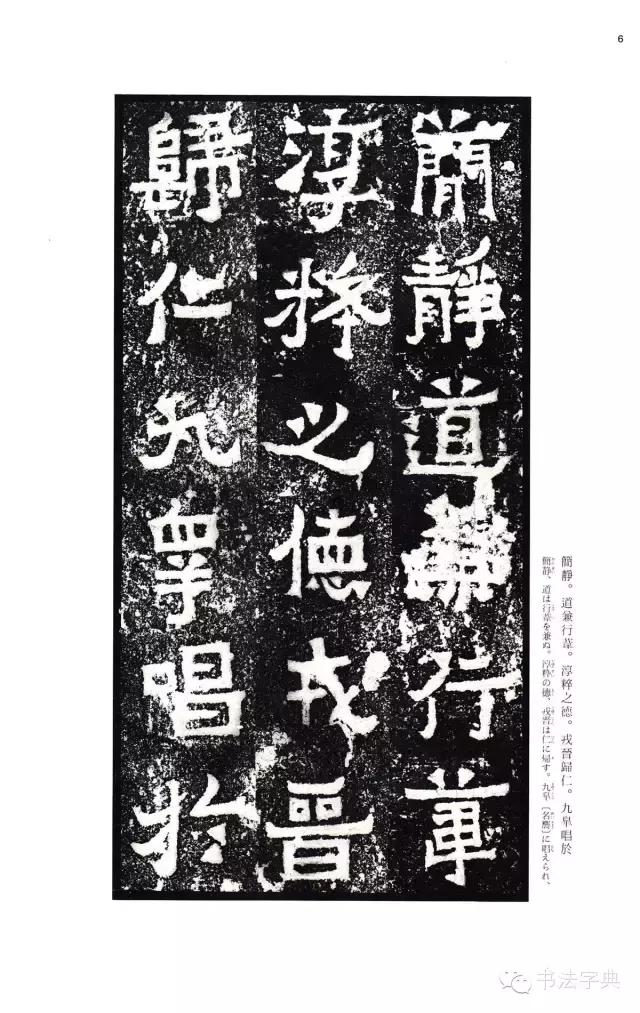 6
簡靜道兼行葦
淳粹之德戎晉
歸仁九皋唱於
簡靜。道兼行葦。淳粹之德。戎晉歸仁。九皋唱於
簡静、道は行葦を兼ぬ。淳粋の徳、戎晋は仁に帰す。九皋〔名声〕に唱えられ、
书法字典